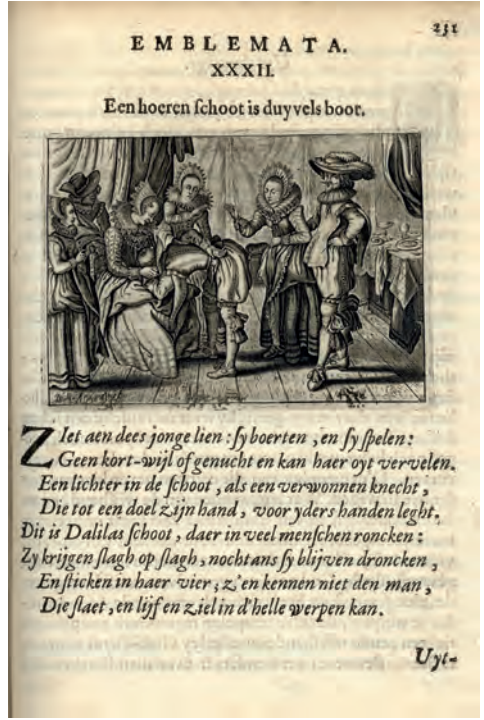 231
EMBLEMATA.
XXXII.
Een hoeren ſchoot is duyvels boot.
ZIet aen dees jonge lien : ſy boerten , en ſy ſpelen :
Geen kort-wijl of genucht en kan haer oyt vervelen.
Een lichter in de ſchoot , als een verwonnen knecht ,
Die tot een doel zijn hand , voor yders handen leght.
Dit is Dalilas ſchoot , daer in veel menſchen roncken :
Zy krijgen ſlagh op ſlagh , nochtans ſy blijven droncken ,
En ſticken in haer vier ; z'en kennen niet den man ,
Die ſlaet , en lijf en ziel in d'helle werpen kan.
Uyt-